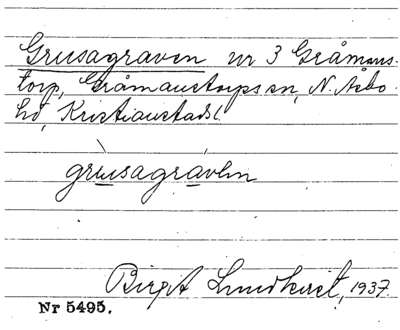 Grusagraven nr 3 Gråmans-
torp, Gråmanstorps sn, N. Åsbo
hd, Kristianstads l.
grusagravən
Birgit Lundkvist, 1937.
Nr 5495.